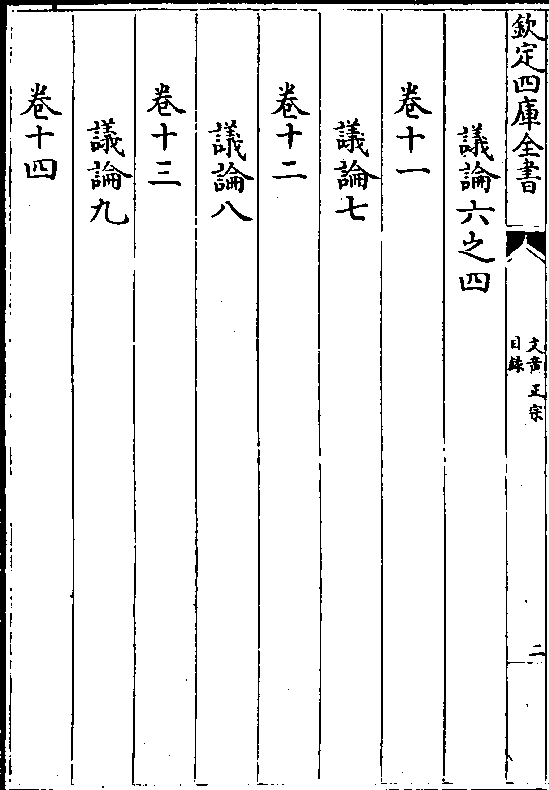 欽定四庫全書
文章正宗
目録
二
議論六之四
卷十一
議論七
卷十二
議論八
卷十三
議論九
卷十四